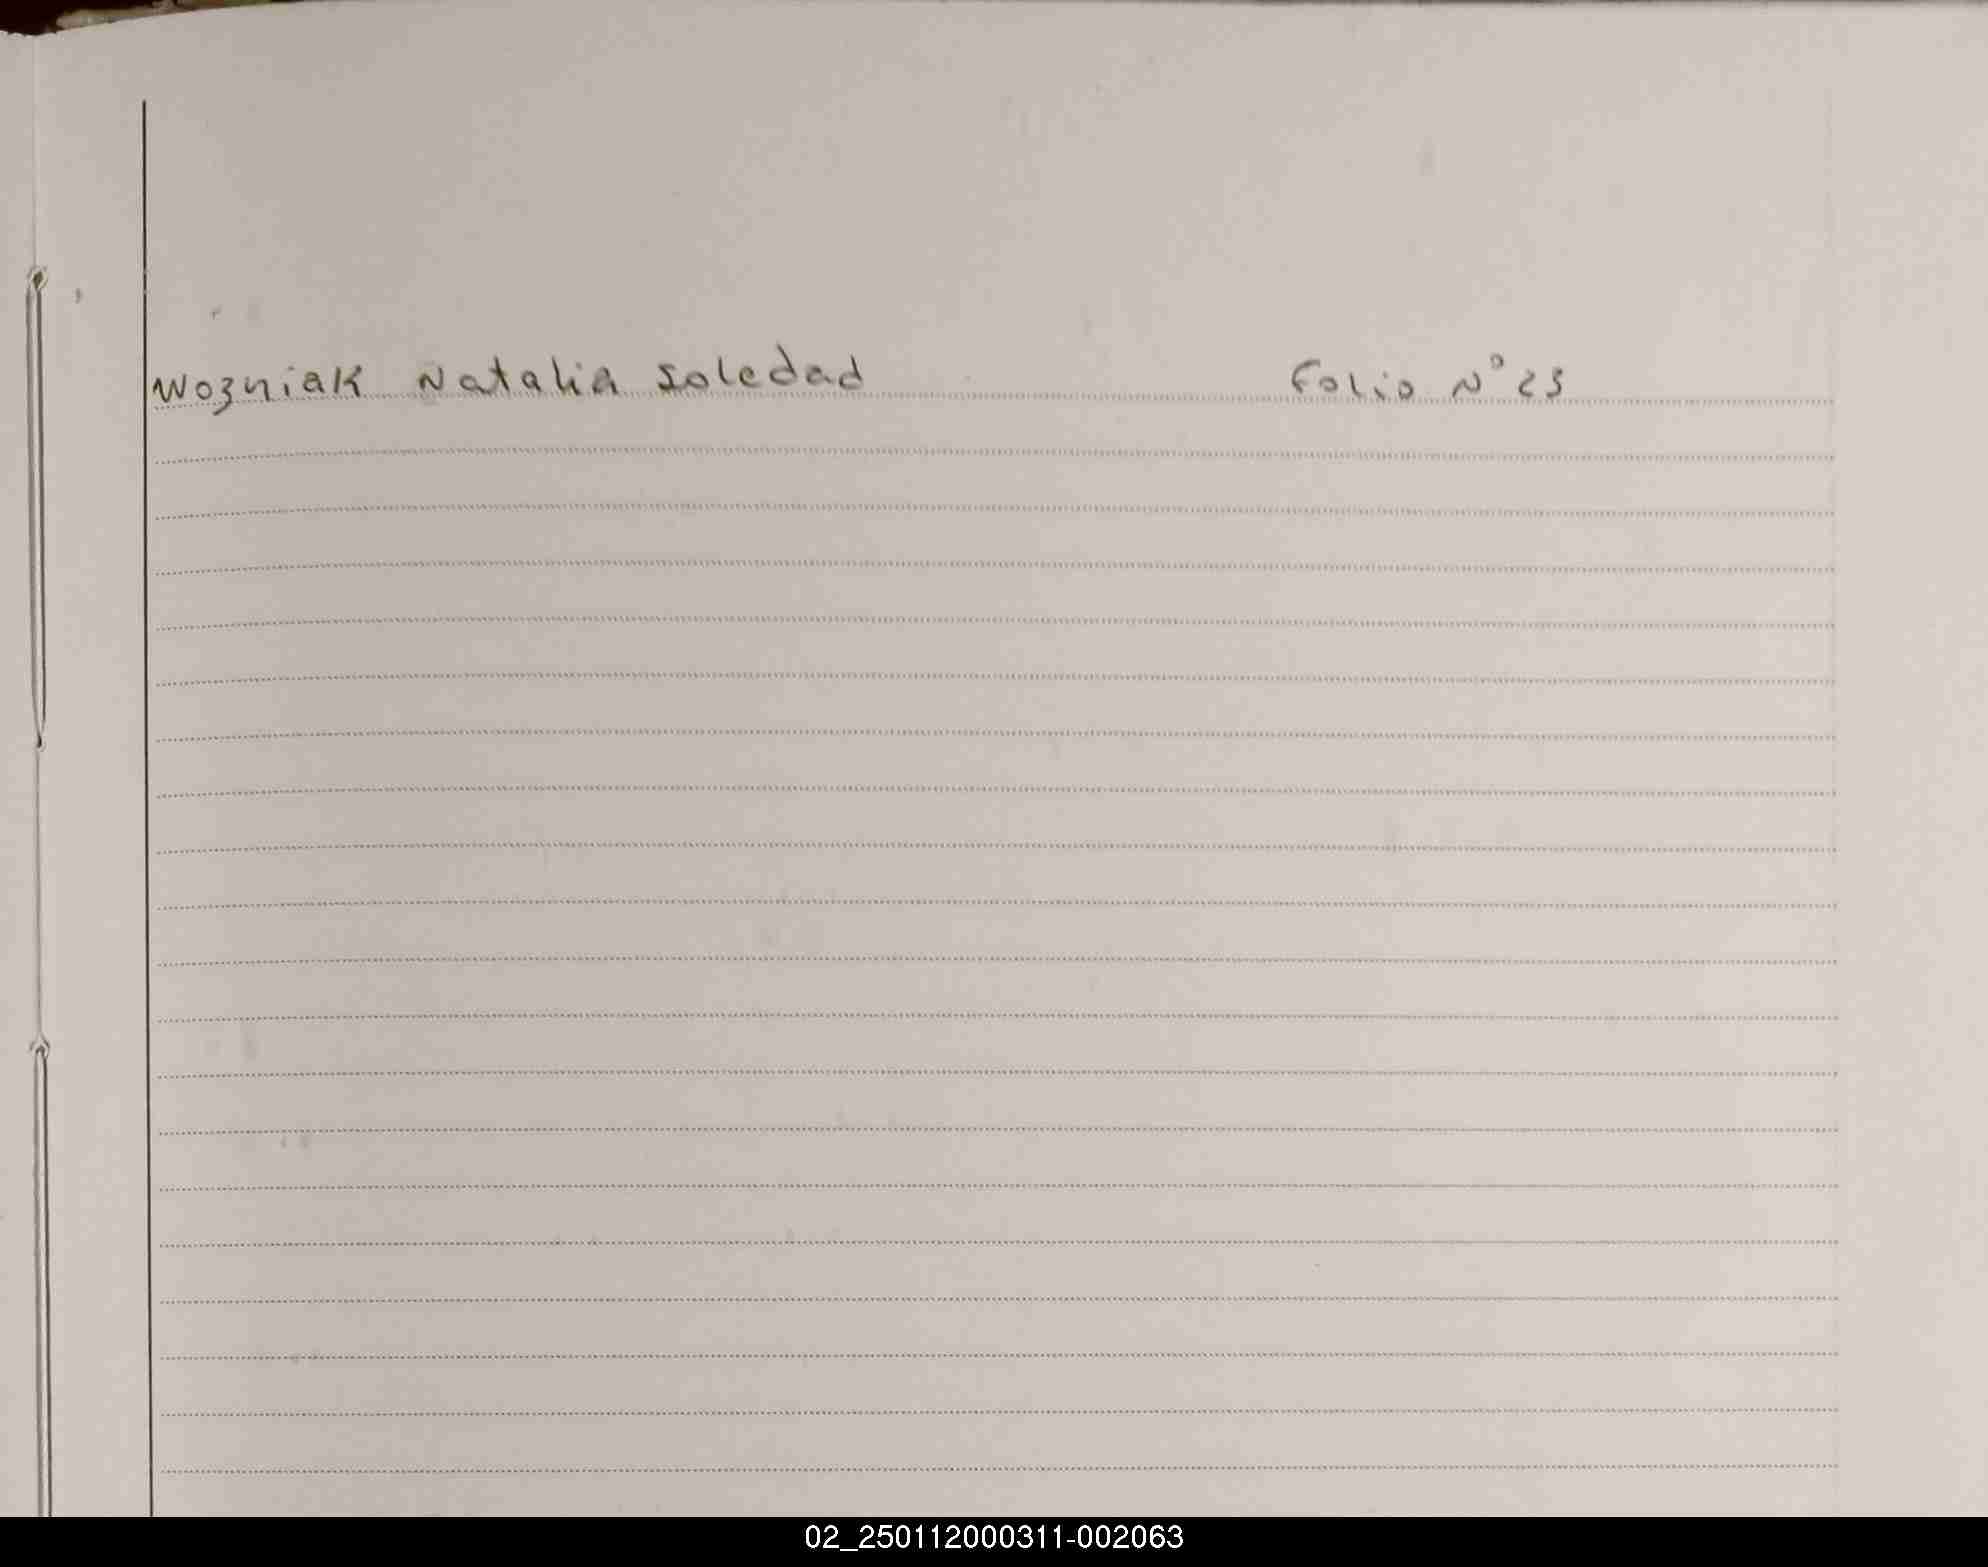 Wozniak Natalia Soledad Folio N° 23
02_250112000311-002063